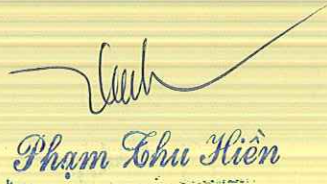 Phạm Thu Hiền